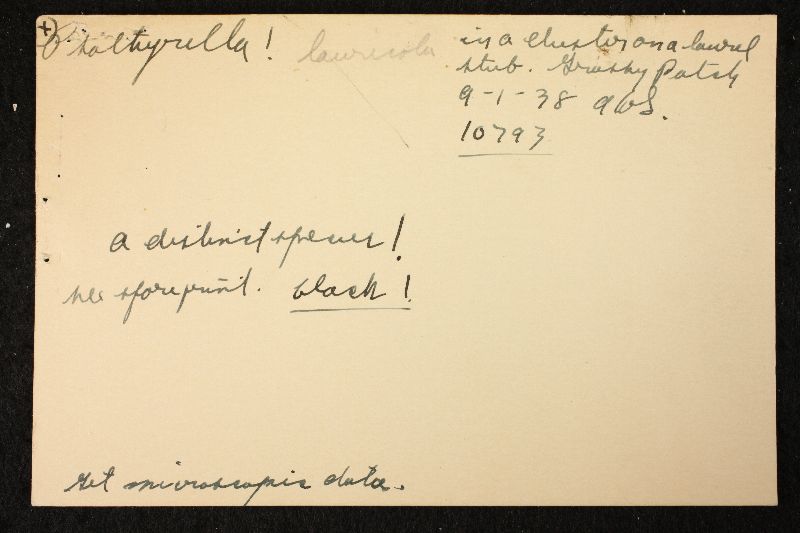 Psathyrella! lauricola
in a cluster on a laurel
stub. Grassy Patch
9-1-38 aws.
10793
a distinct species!
see sporeprint. black!
Get microscopic data.